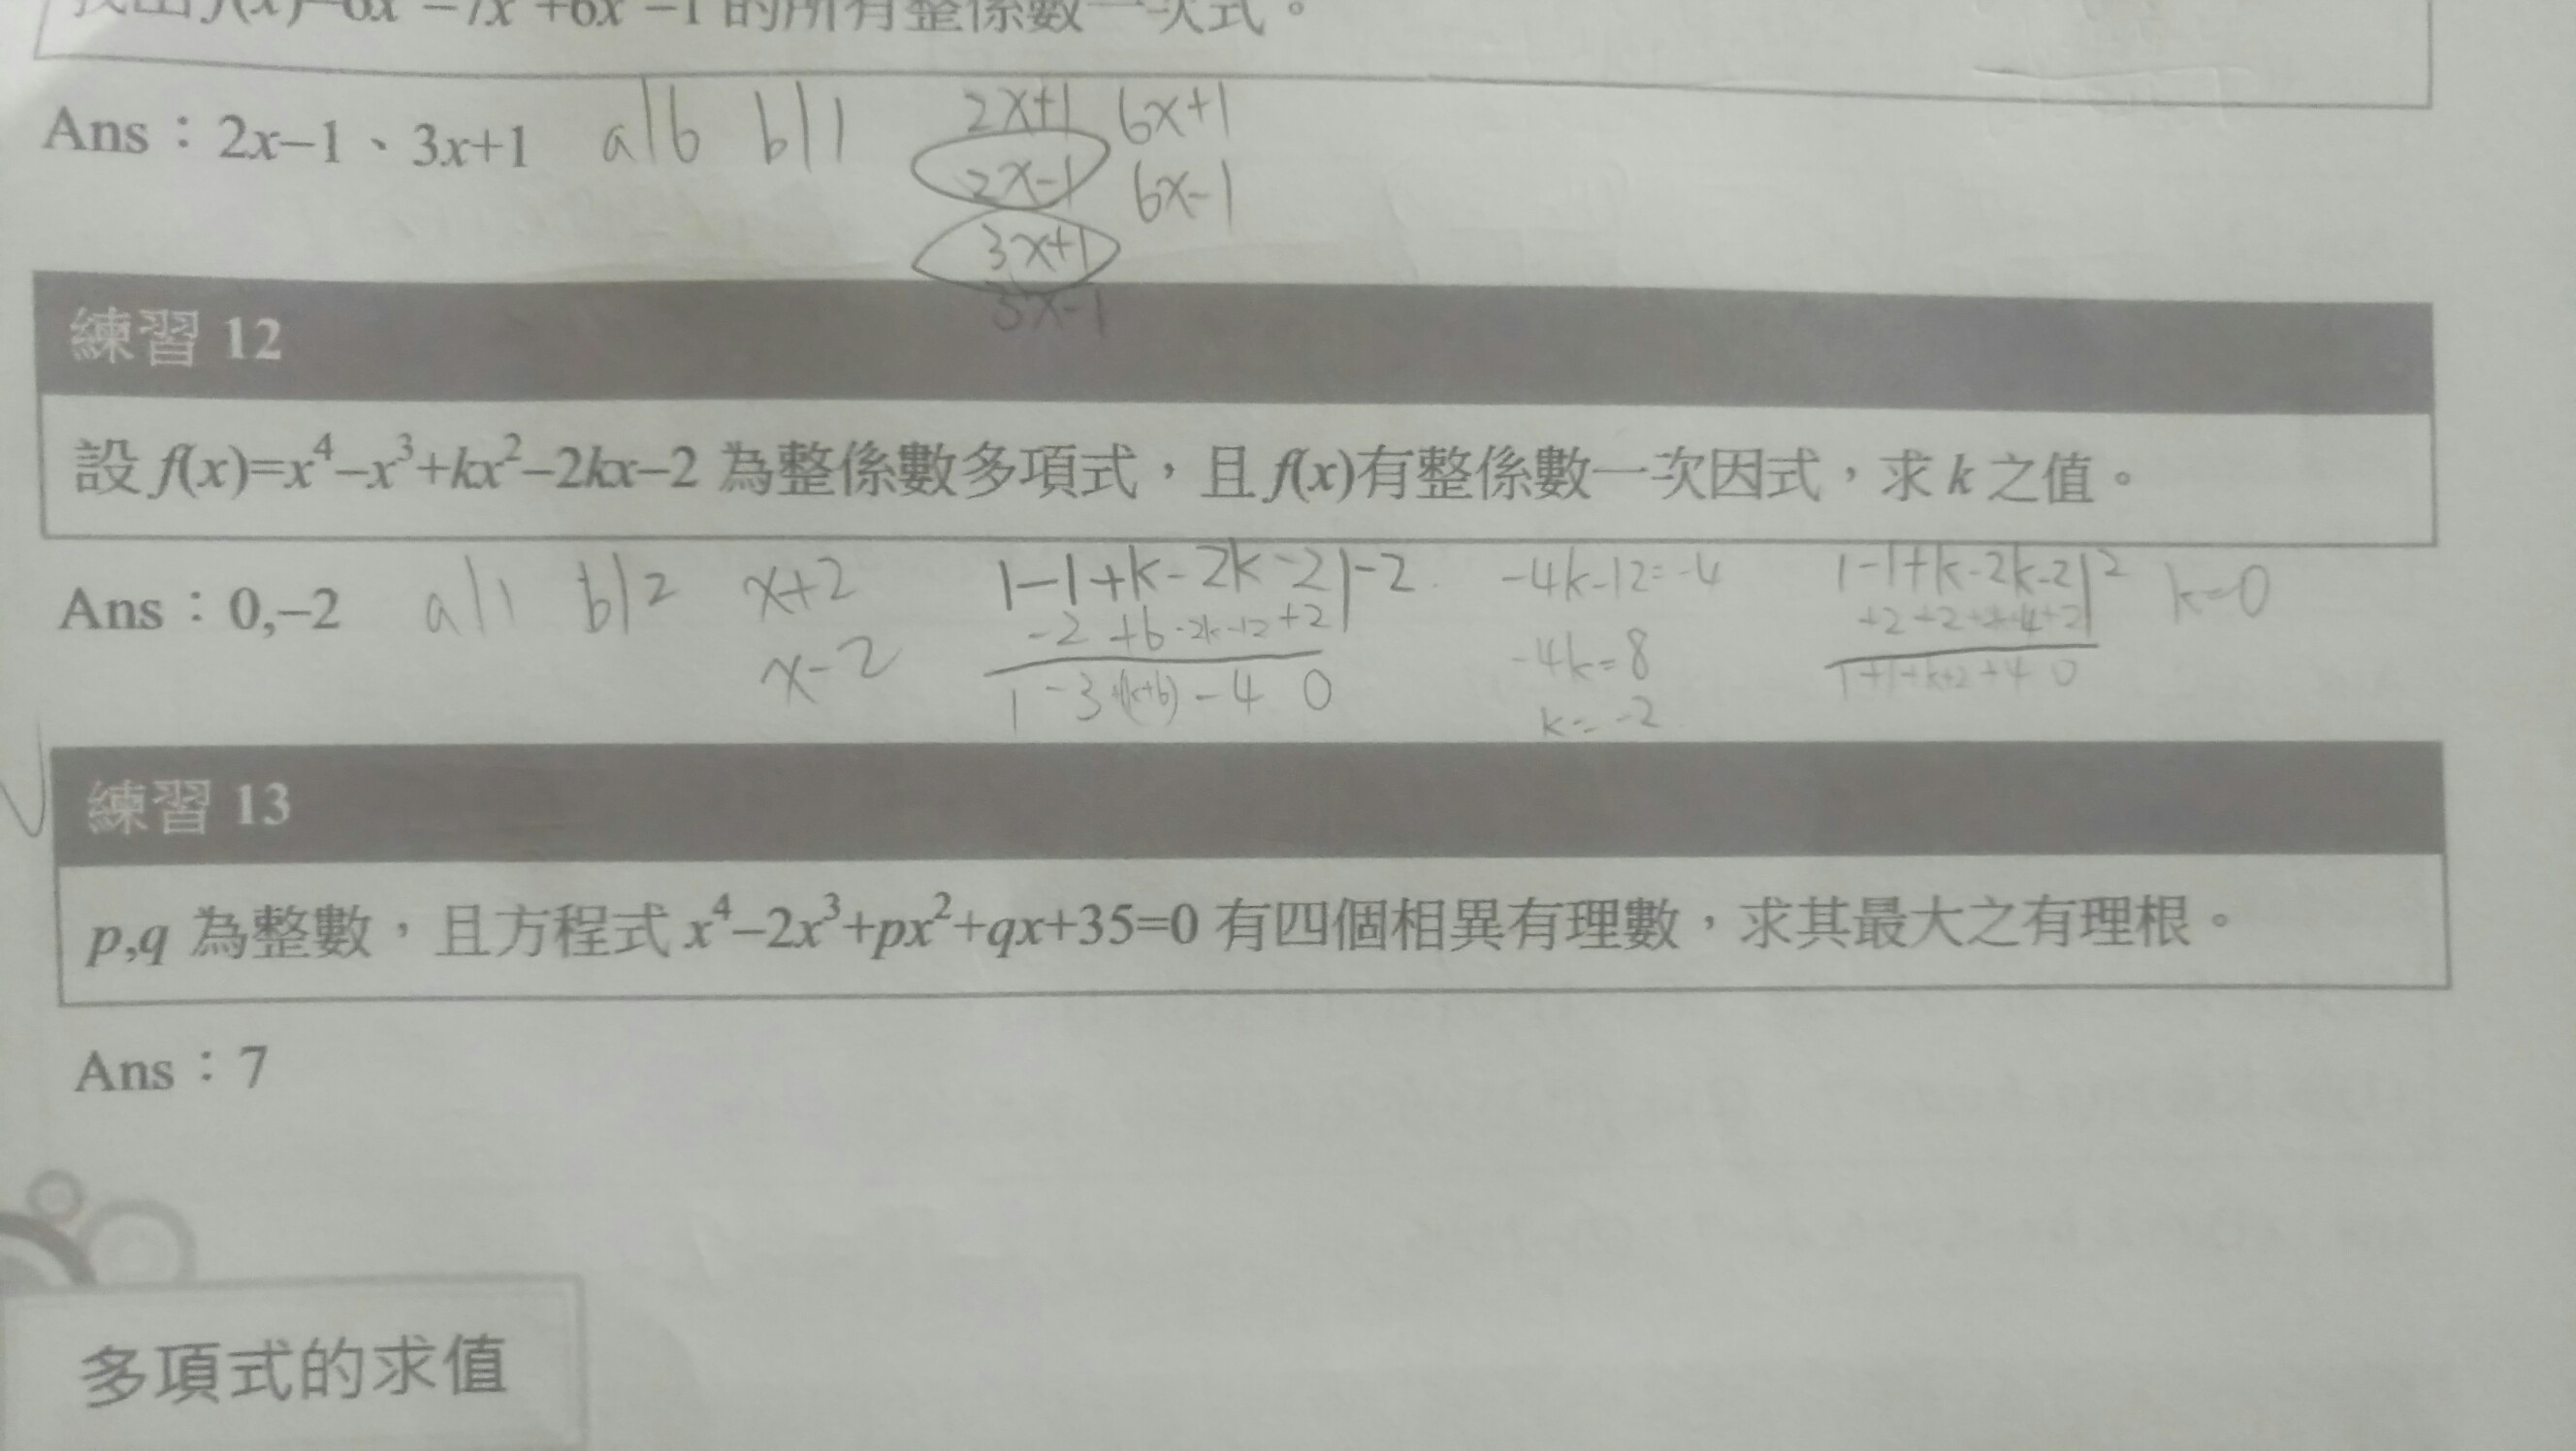 f(x)=6x −7x +6x −1 的所有整係數一次式。
Ans：2x−1、3x+1
a|6 b|1
2x+1 6x+1
2x-1 6x-1
3x+1
3x-1
練習 12
設 f(x)=x⁴−x³+kx²−2kx−2 為整係數多項式，且 f(x)有整係數一次因式，求 k 之值。
Ans：0,−2
a|1 b|2
x+2
x-2
1-1+k-2k-2|-2
-2+6-2k-12+2
1-3+(k+6)-4 0
-4k-12=-4
-4k=8
k=-2
1-1+k-2k-2|2
1+1+k+2+4 0
k=0
練習 13
p,q 為整數，且方程式 x⁴−2x³+px²+qx+35=0 有四個相異有理數，求其最大之有理根。
Ans：7
多項式的求值